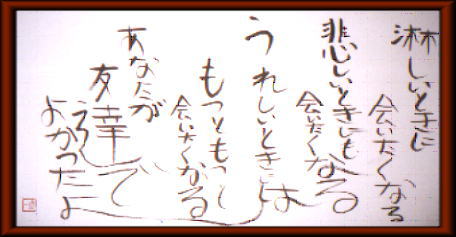 淋しいときに
会いたくなる
悲しいときにも
会いたくなる
うれしいときには
もっともっと
会いたくなる
あなたが
友達で
よかったよ